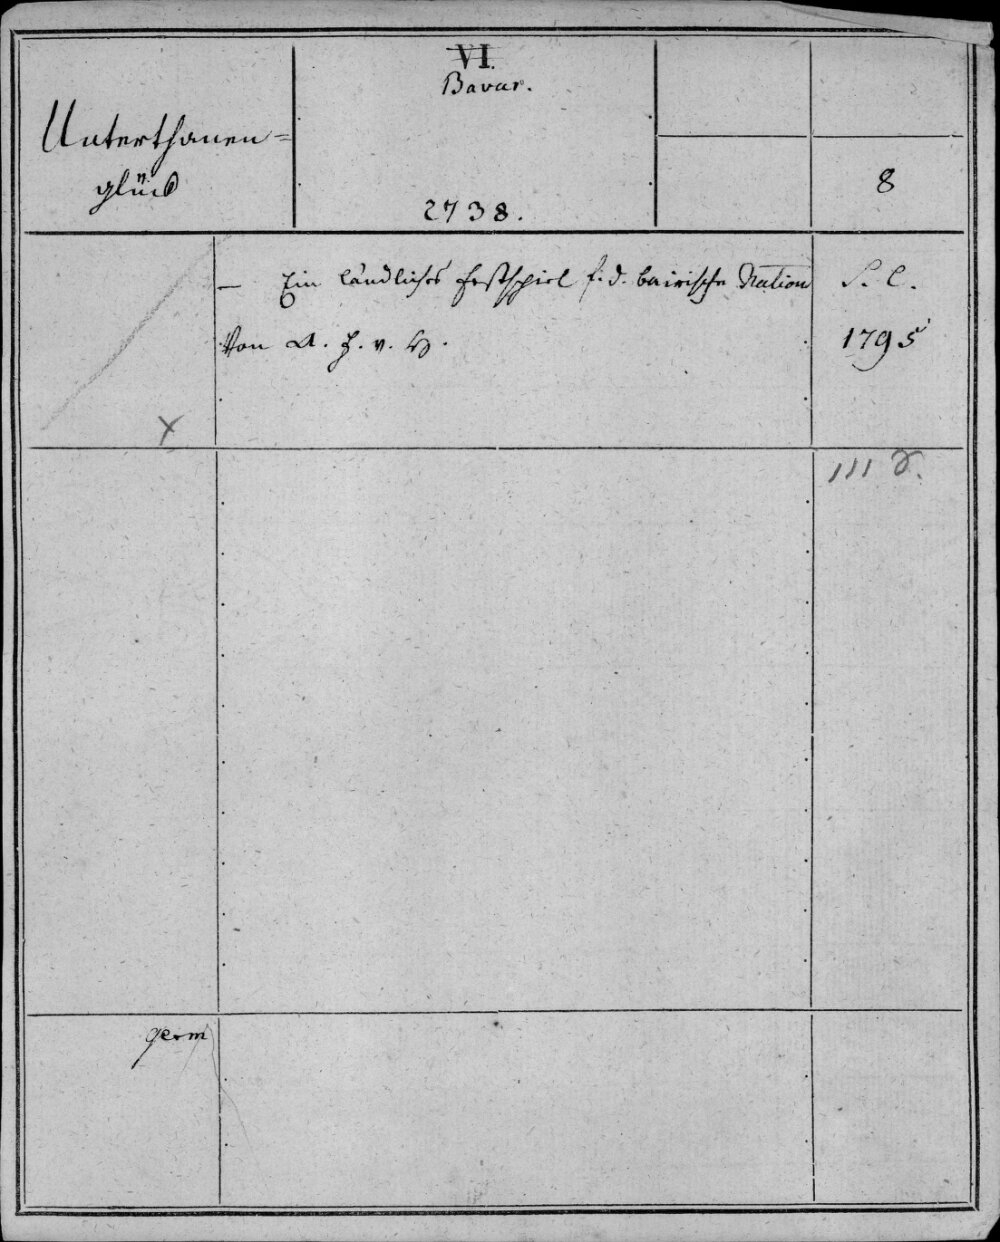 VI.
Bavar.
Unterthanen=
glück
2738.
8
— Ein ländliches Festspiel f. d. bairische Nation
S. l.
Von A. H. v. H.
1795
X
111
germ